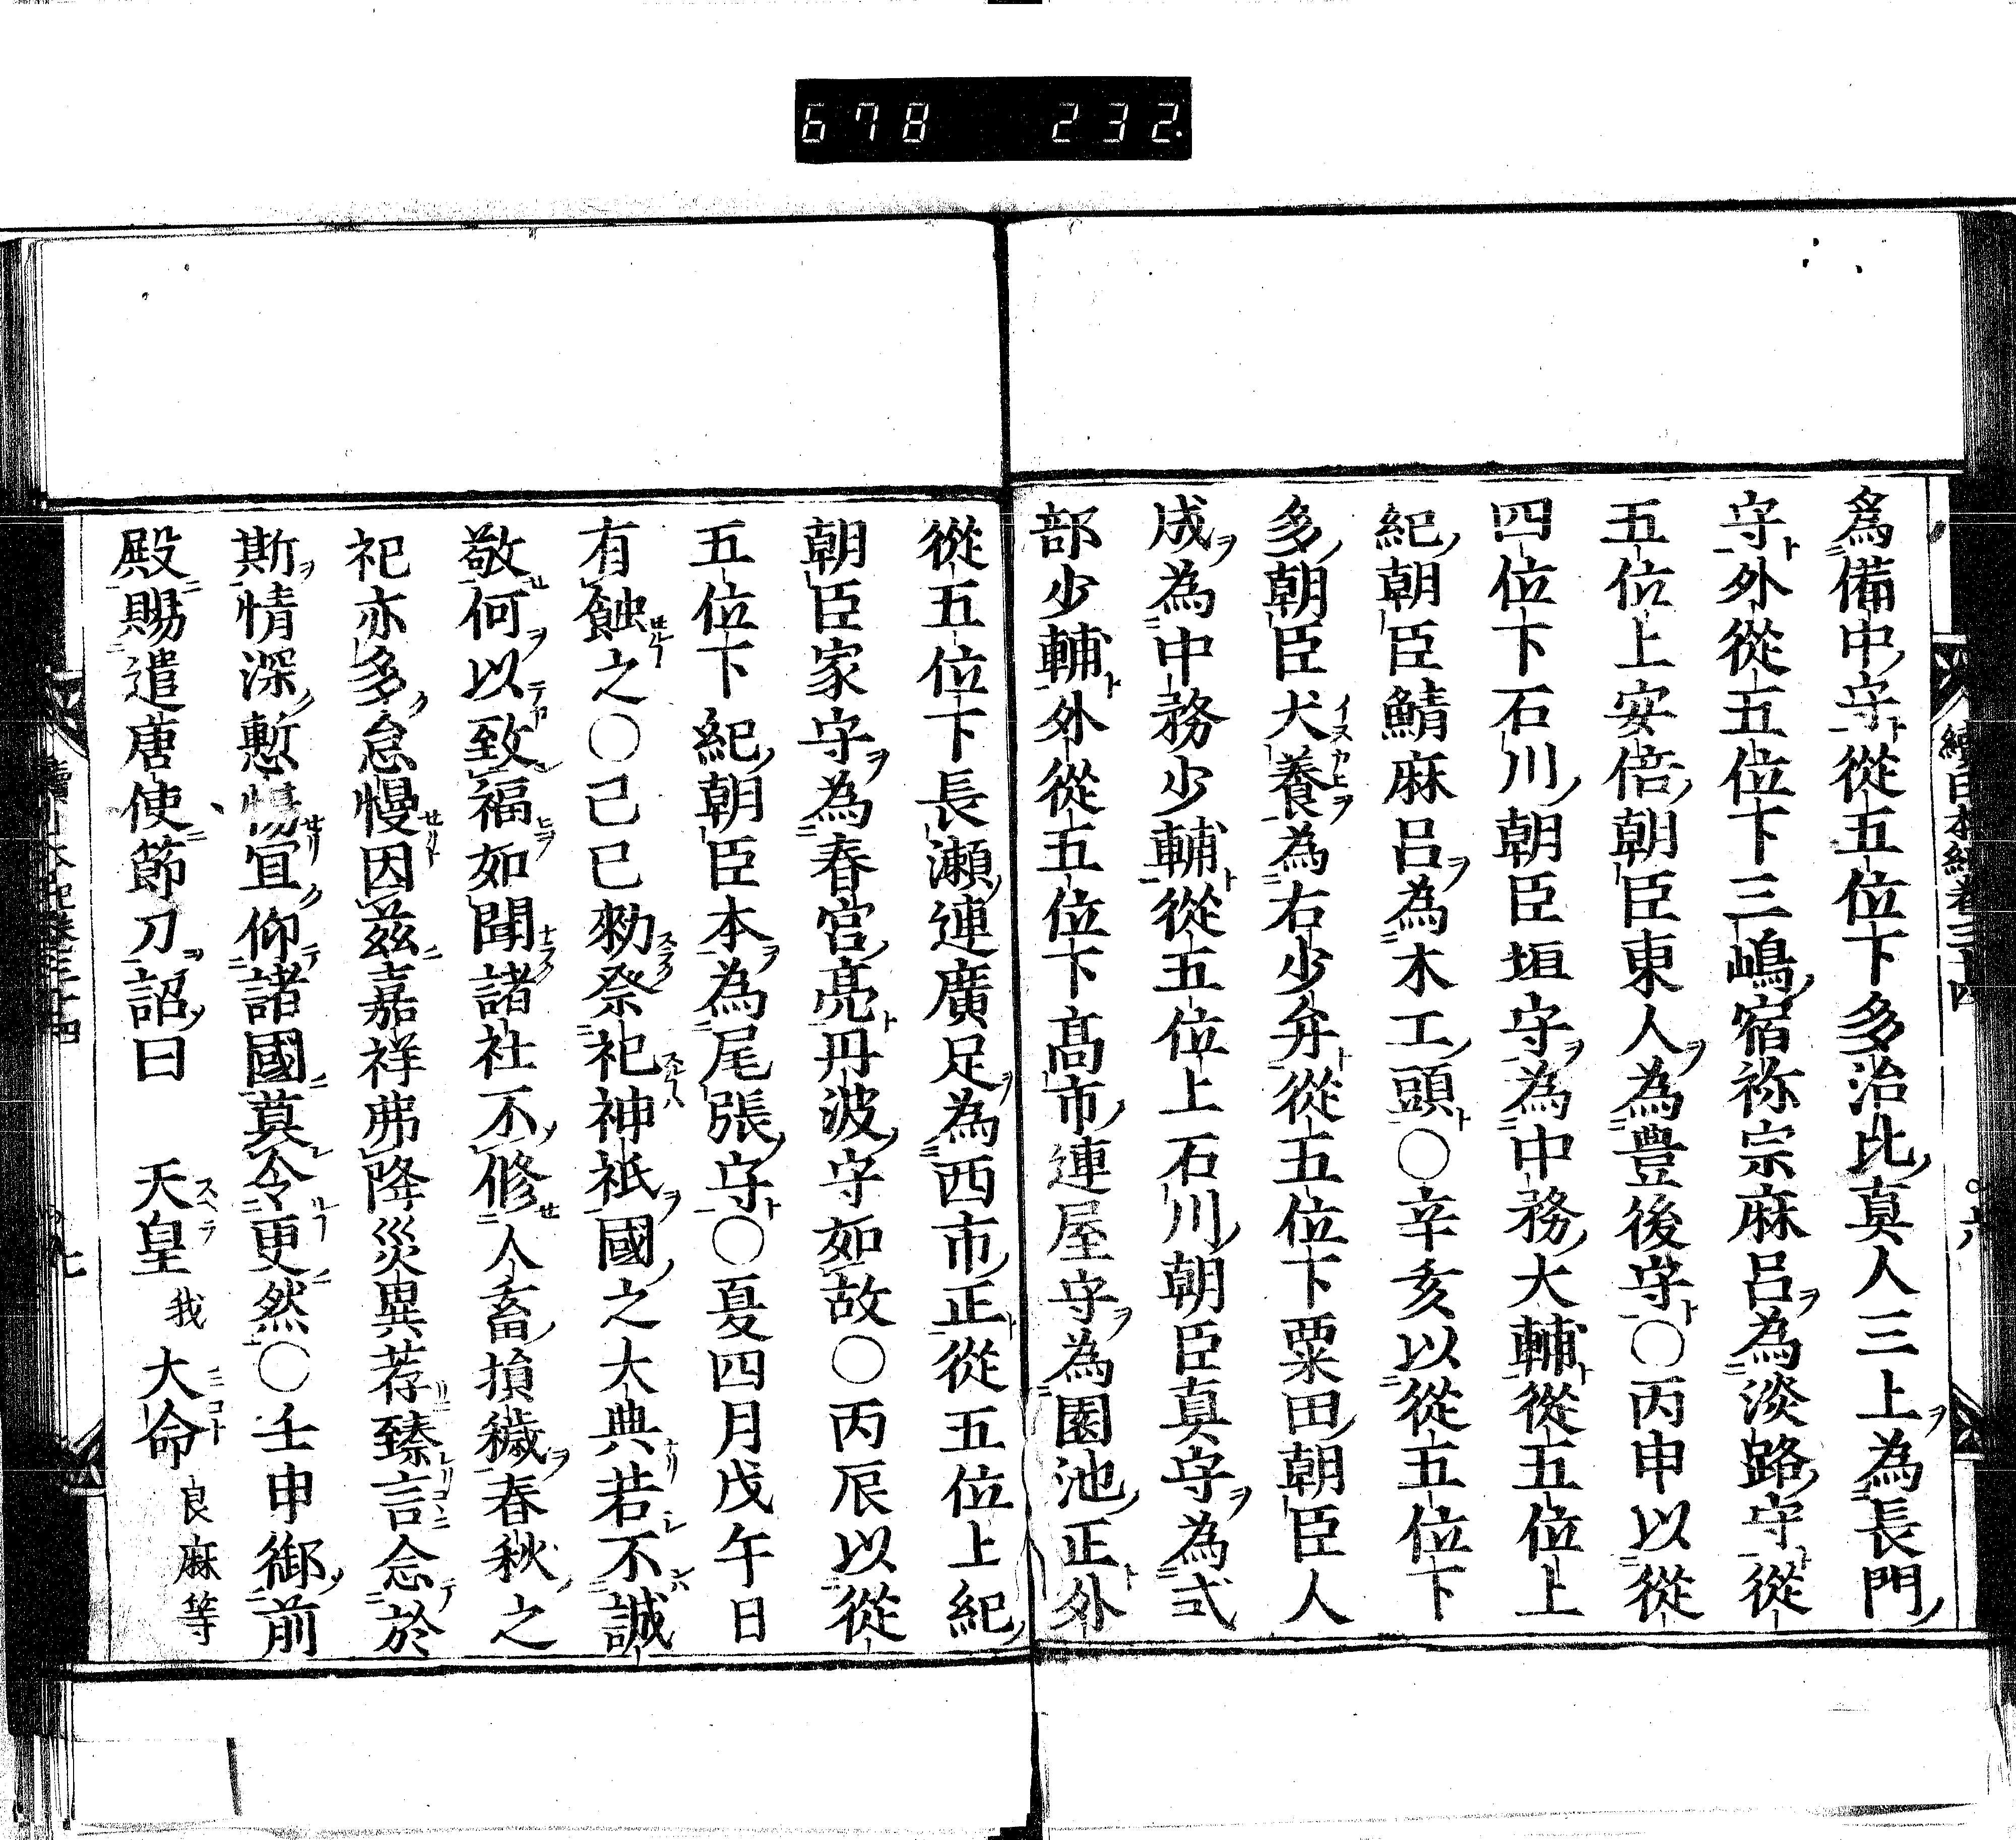 678 232.
為備中守從五位下多治比真人三上為長門
守外從五位下三嶋宿祢宗麻呂為淡路守從
五位上安倍朝臣東人為豊後守○丙申以從
四位下石川朝臣垣守為中務大輔從五位上
紀朝臣鯖麻呂為木工頭○辛亥以從五位下
多朝臣犬養為右少弁從五位下粟田朝臣人
成為中務少輔從五位上石川朝臣真守為式
部少輔外從五位下髙市連屋守為園池正外
從五位下長瀬連廣足為西市正從五位上紀
朝臣家守為春宮亮丹波守如故○丙辰以從
五位下紀朝臣本為尾張守○夏四月戊午日
有蝕之○己巳勑祭祀神祇國之大典若不誠
敬何以致福如聞諸社不修人畜損穢春秋之
祀亦多怠慢因茲嘉祥弗降災異荐臻言念於
斯情深慙惕宜仰諸國莫令更然○壬申御前
殿賜遣唐使節刀詔曰　天皇我大命良麻等